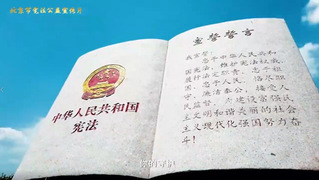 北京市宪法公益宣传片
中华人民共和国
宪法
宣誓誓言
我宣誓：忠于中华人民共和
国宪法，维护宪法权威，
履行法定职责，忠于祖
国、忠于人民，恪尽职
守、廉洁奉公，接受人
民监督，为建设富强民
主文明和谐美丽的社会
主义现代化强国努力奋
斗！